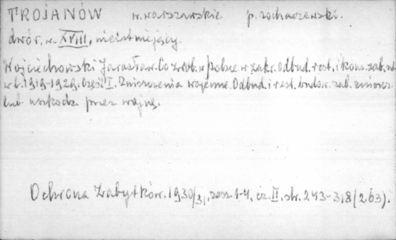 TROJANÓW w. warszawskie p. sochaczewski.
dwór, w. XVIII, nieistniejący.
Wojciechowski Jarosław. Co zrob. w Polsce w zakr. odbud. rest. i kons. zab. szt.
w l. 1919-1929. Część I. Zniszczenia wojenne. Odbud. i rest. budow. zab. zniszcz.
lub uszkodz. przez wojnę.
Ochrona Zabytków. 1930/31, zesz. 1-4, cz. II, str. 243-318 (263).